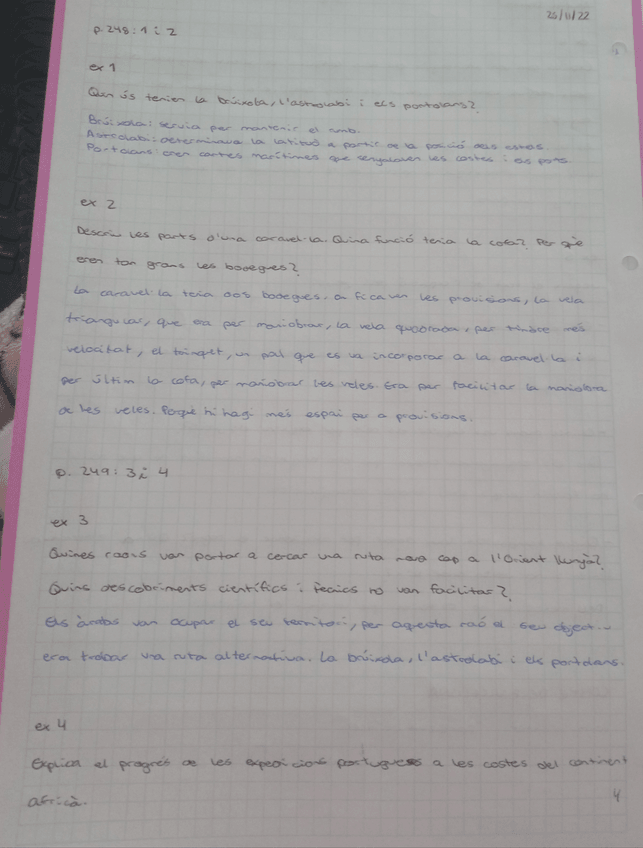 25/11/22
p. 248: 1 i 2
ex 1
Quin ús tenien la brúixola, l'astrolabi i els portolans?
Brúixola: servia per mantenir el rumb.
Astrolabi: determinava la latitud a partir de la posició dels astres.
Portolans: eren cartes marítimes que senyalaven les costes i els ports
ex 2
Descriu les parts d'una caravel·la. Quina funció tenia la cofa? Per què
eren tan grans les bodegues?
La caravel·la tenia dos bodegues, on ficaven les provisions, la vela
triangular, que era per maniobrar, la vela quadrada, per tindre més
velocitat, el trinquet, un pal que es va incorporar a la caravel·la i
per últim la cofa, per maniobrar les veles. Era per facilitar la maniobra
de les veles. Perquè hi hagi més espai per a provisions.
p. 249: 3 i 4
ex 3
Quines raons van portar a cercar una ruta nova cap a l'Orient llunyà?
Quins descobriments científics i tècnics ho van facilitar?
Els àrabs van ocupar el seu territori, per aquesta raó el seu object...
era trobar una ruta alternativa. La brúixola, l'astrolabi i els portolans.
ex 4
Explica el progrés de les expedicions portugueses a les costes del continent
africà.
4